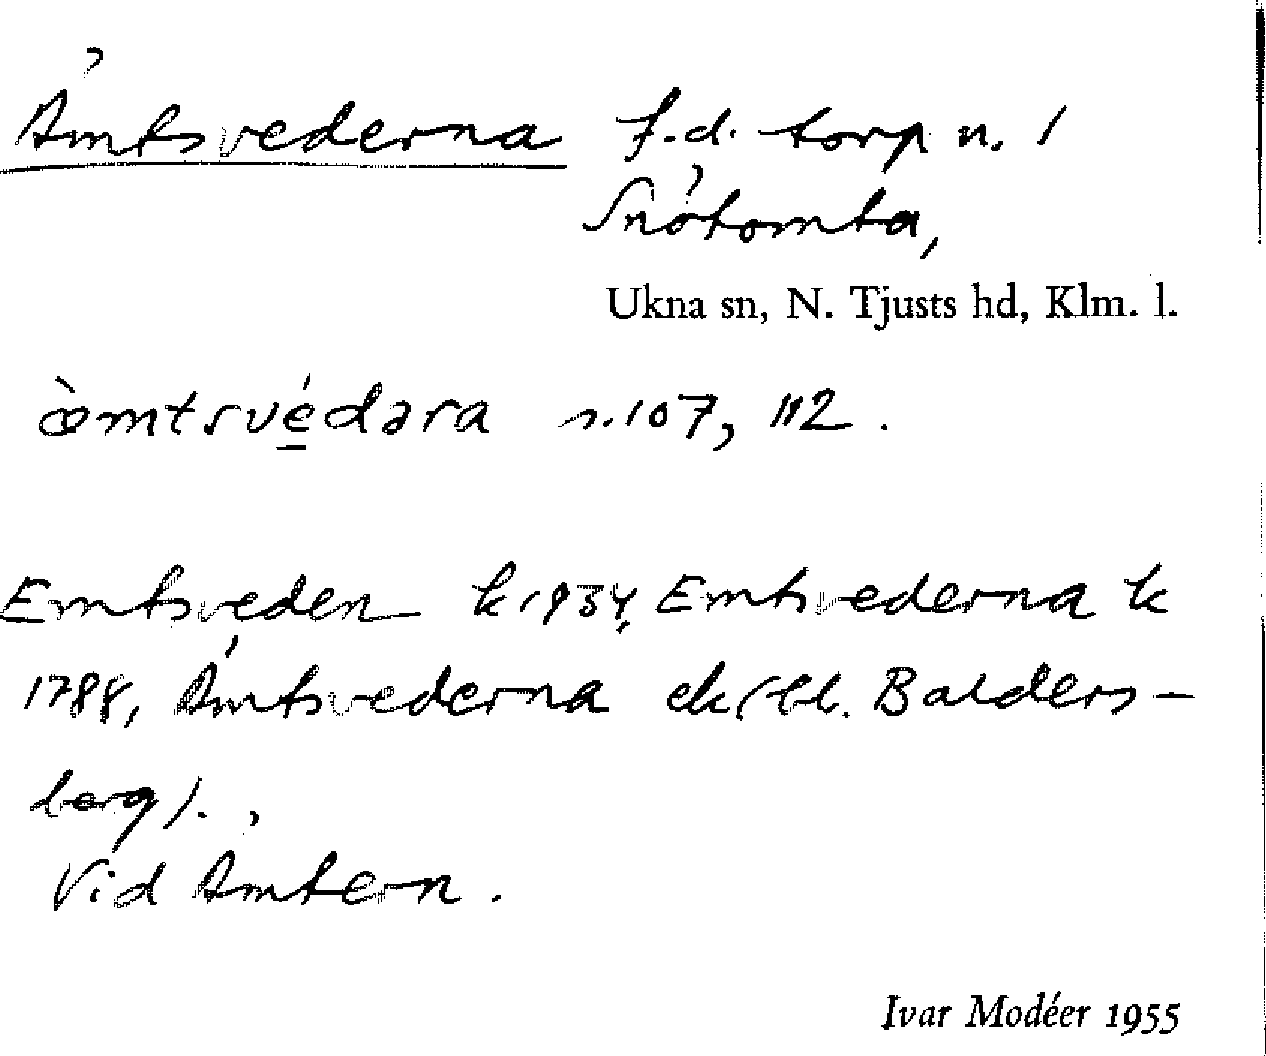 Ämtsvederna f.d. torp n. 1
Snötomta,
Ukna sn, N. Tjusts hd, Klm. l.
œ̀mtsvé̠dəra n. 107, 112.
Emtsveden k 1934, Emtsvederna k
1788, Ämtsvederna ek (bl. Balders-
berg).
Vid Ämtern.
Ivar Modéer 1955